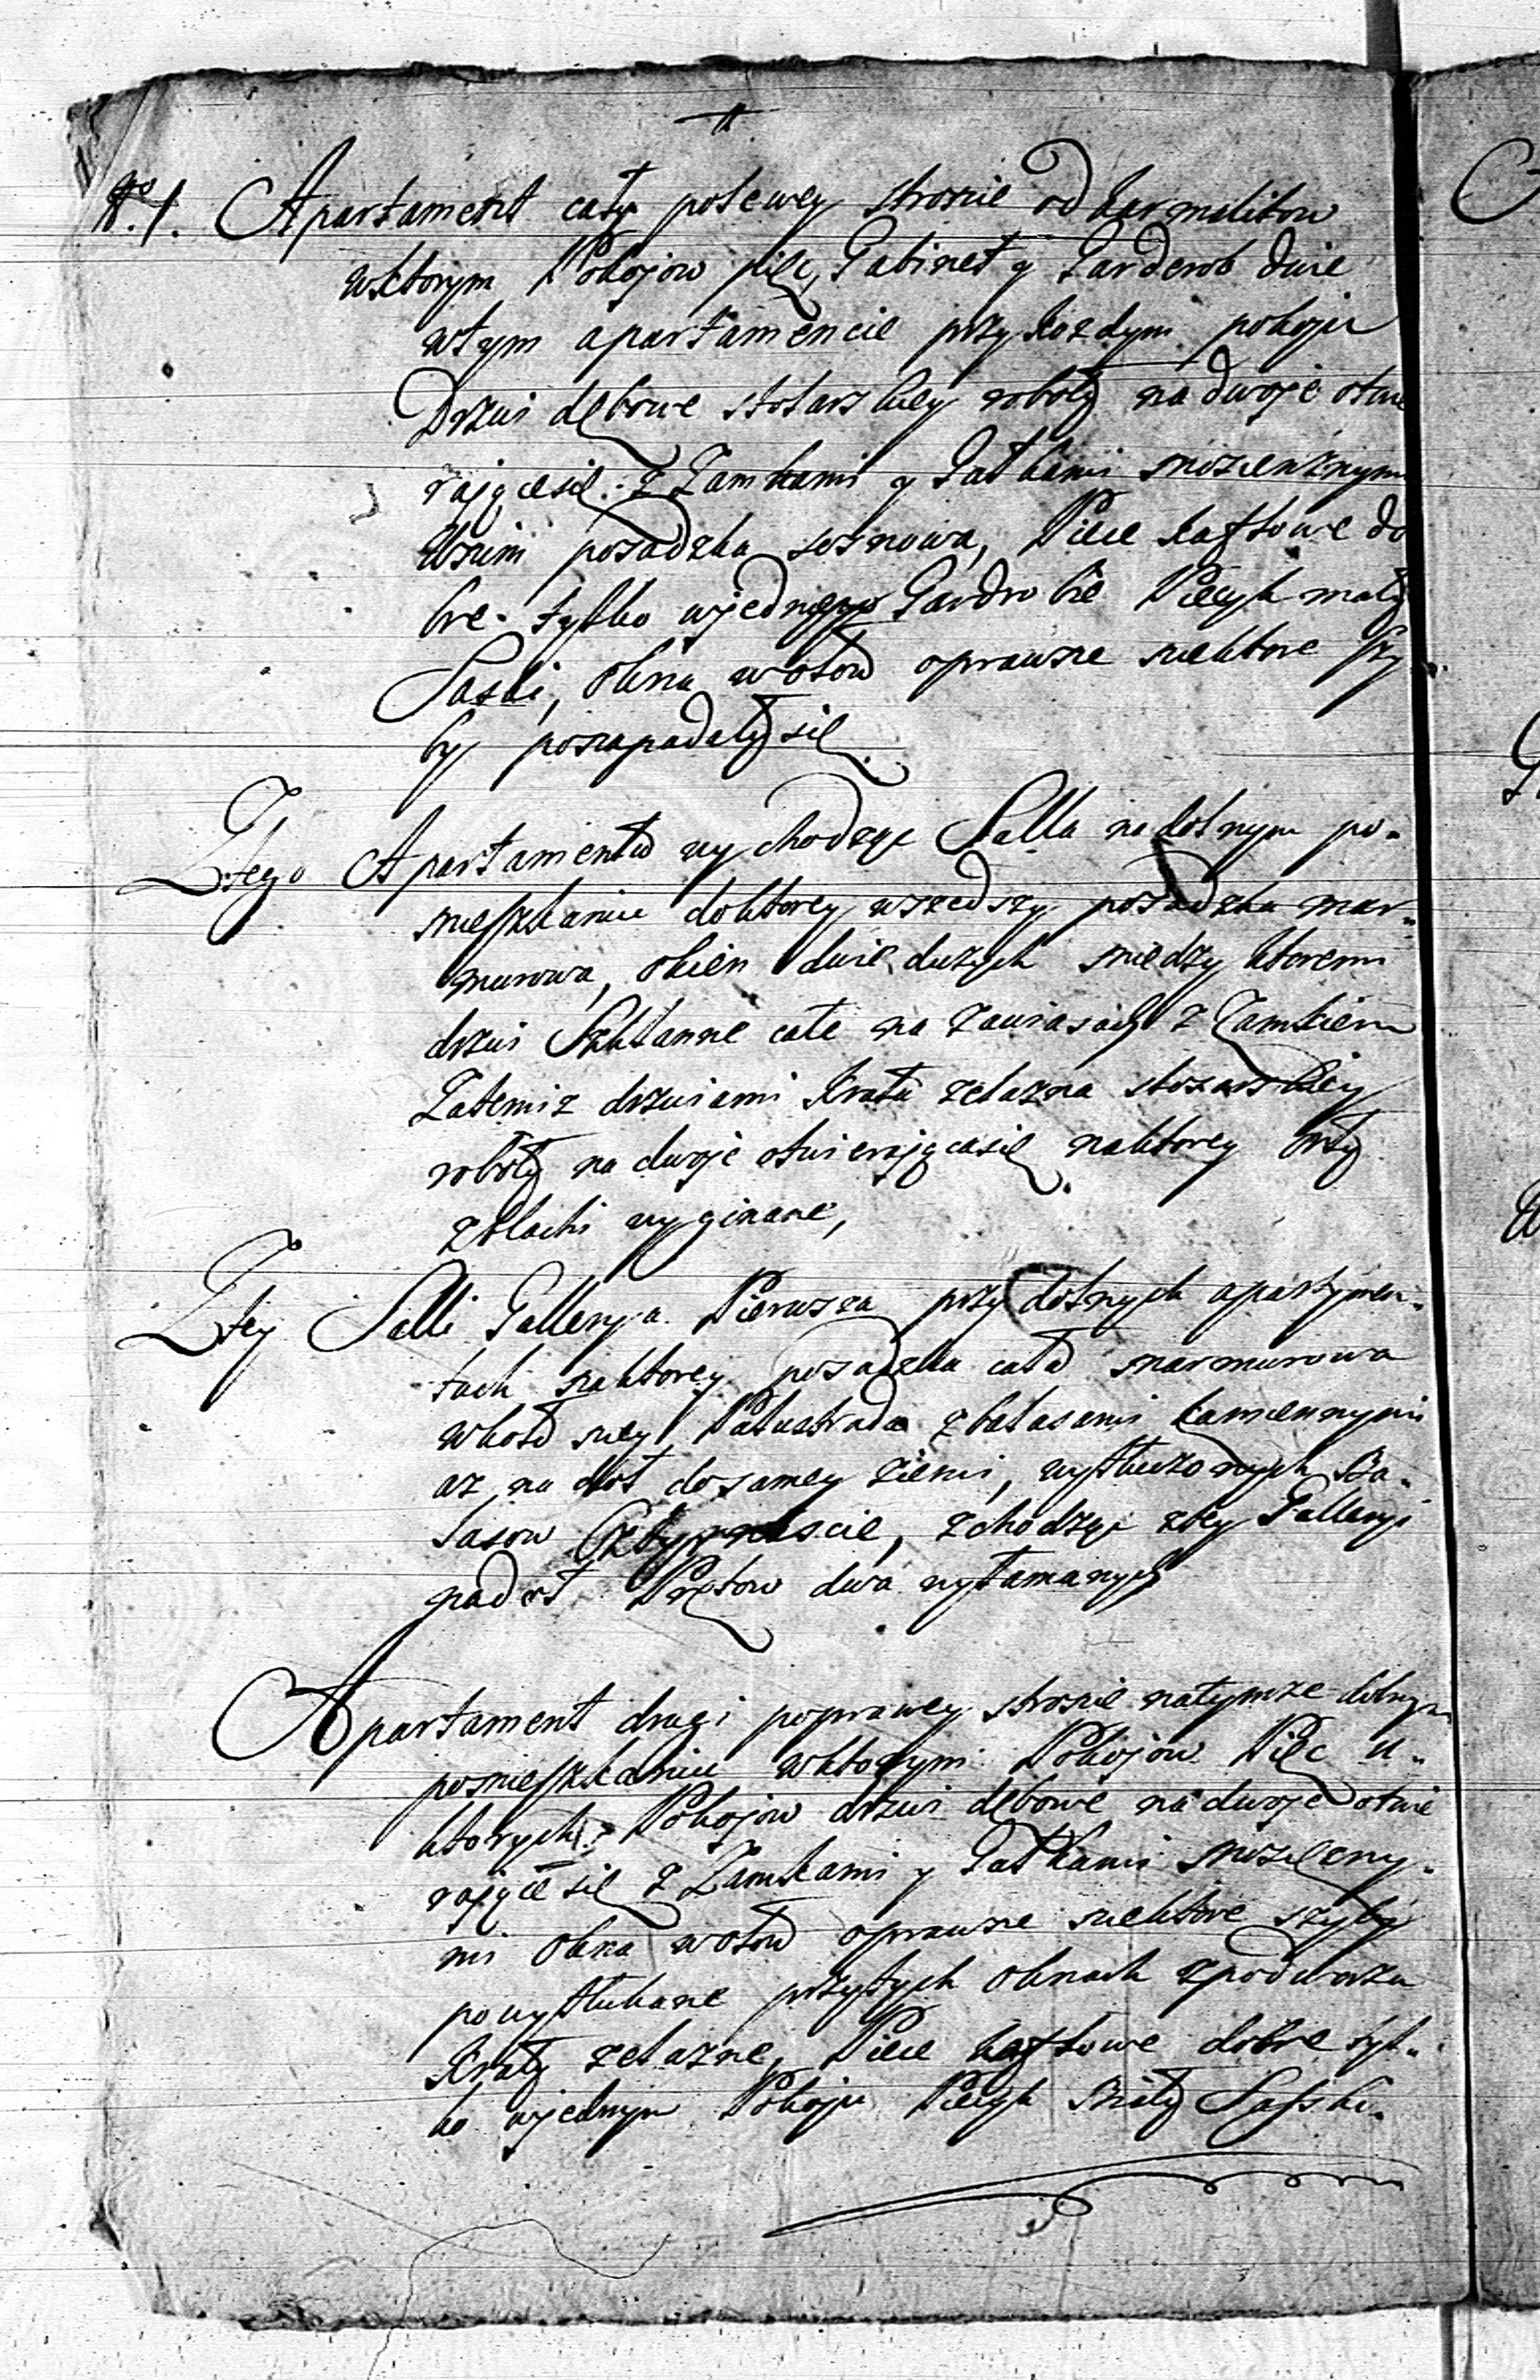 No. 1. Apartament cały polewey stronie od karmelitow
wktorym Pokojow pięc, Gabinet y Garderob dwie
wtym apartamencie przy kozdym pokoju
Drzwi dębowe stolarskiey roboty na dwoje otwie
rającesię z Zamkami y Gałkami mosienznymi
Wnim posadzka sosnowa, Piece kaflowe do
bre. tylko wjedney Gardrobie Piecyk mały
Saski, okna wołow oprawne niektore szy
by pozapadały się.
Ztego Apartamentu wychodząc Salla nadolnym po-
mieszkaniu doktorey wszedszy posadzka mar-
murowa, okien dwie dużych miedzy ktoremi
drzwi Szklanne całe na zawiasach z Zamkiem
Zatemiz drzwiami Krata zelazna slosarskiey
roboty na dwoje otwierającasię naktorey orły
zblachi wyginane,
Ztey Salli Gallerya Pierwsza przy dolnych apartymen-
tach naktorey posadzka cała marmurowa
wkoło niey Balustrada zbalasami kamiennymi
az na doł dosamey ziemi, wytłuczonych Ba-
lasow, zchodząc ztey Galleryi
nadoł Prętow dwa wyłamanych
Apartament drugi poprawey stronie natymze dolnym
pomieszkaniu wktorym Pokojow Pięc u-
ktorych Pokojow drzwi dębowe na dwoje otwie
rające się z Zamkami y Gałkami mosięzny-
mi okna wołow oprawne niektore szyby
powytłukane przytych oknach zpodworza
Kraty zelazne, Piece kaflowe dobre tyl-
ko wjednym Pokoju Piecyk mały Saski.